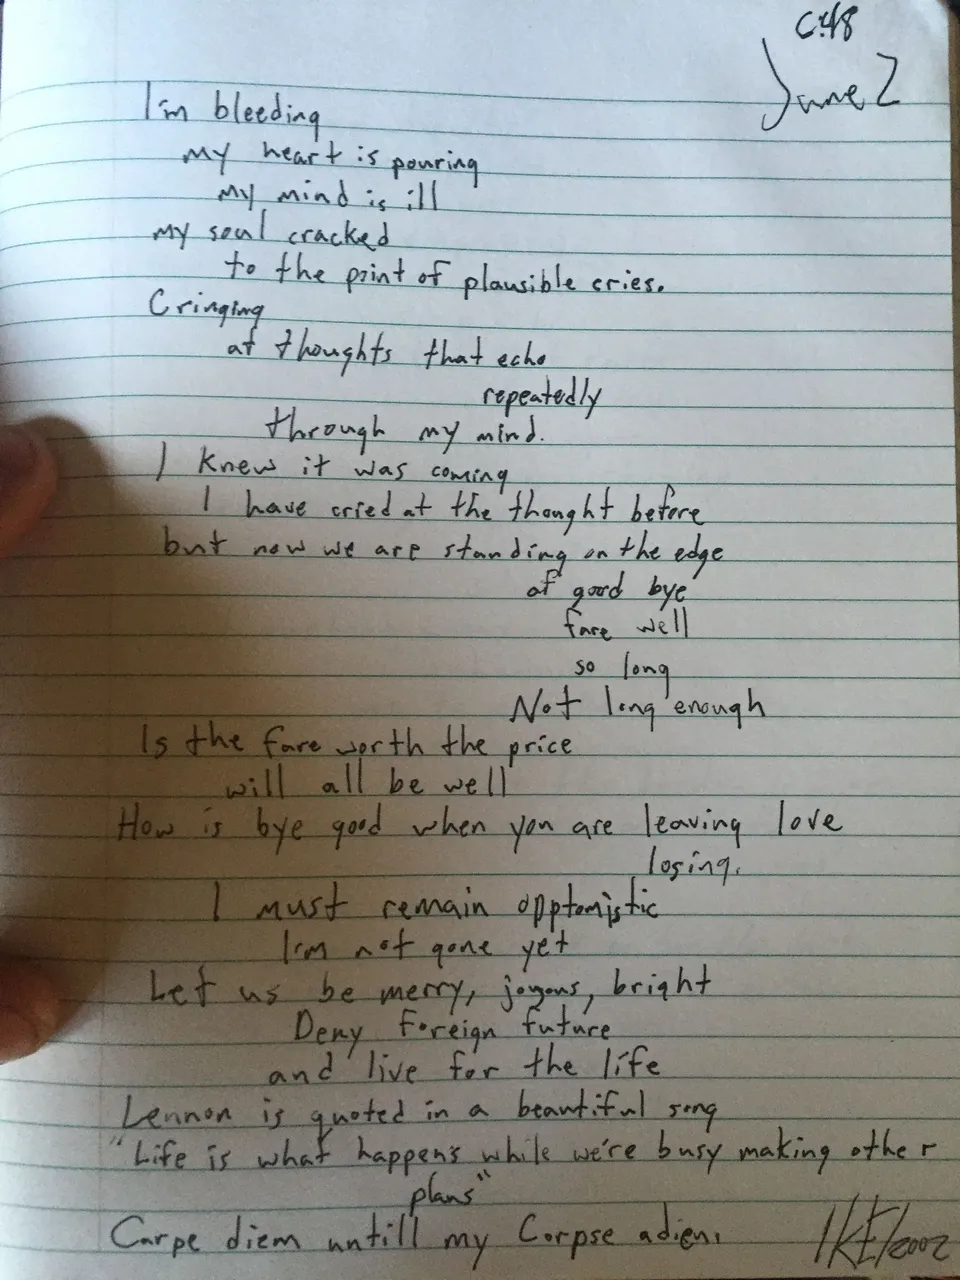 C:48
June 2
I'm bleeding
my heart is pouring
my mind is ill
my soul cracked
to the point of plausible cries.
Cringing
at thoughts that echo
repeatedly
through my mind.
I knew it was coming
I have cried at the thought before
but now we are standing on the edge
of good bye
fare well
so long
Not long enough
Is the fare worth the price
will all be well
How is bye good when you are leaving love
losing.
I must remain opptomistic
I'm not gone yet
Let us be merry, joyous, bright
Deny foreign future
and live for the life
Lennon is quoted in a beautiful song
"Life is what happens while we're busy making other
plans"
Carpe diem untill my Corpse adieu.
2002